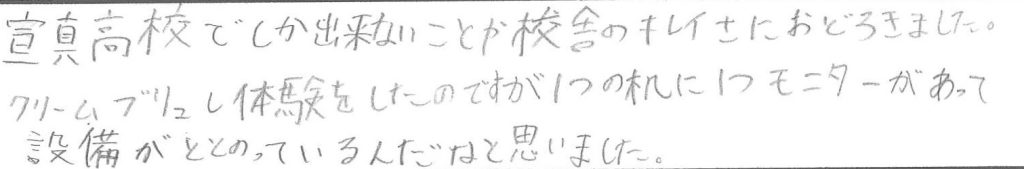 宣真高校でしか出来ないことや校舎のキレイさにおどろきました。
クリームブリュレ体験をしたのですが1つの机に1つモニターがあって
設備がととのっているんだなと思いました。